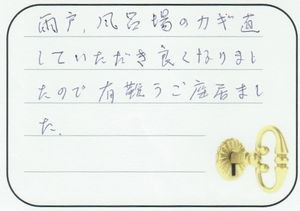 雨戸、風呂場のカギ直
していただき良くなりまし
たので有難うご座居まし
た、